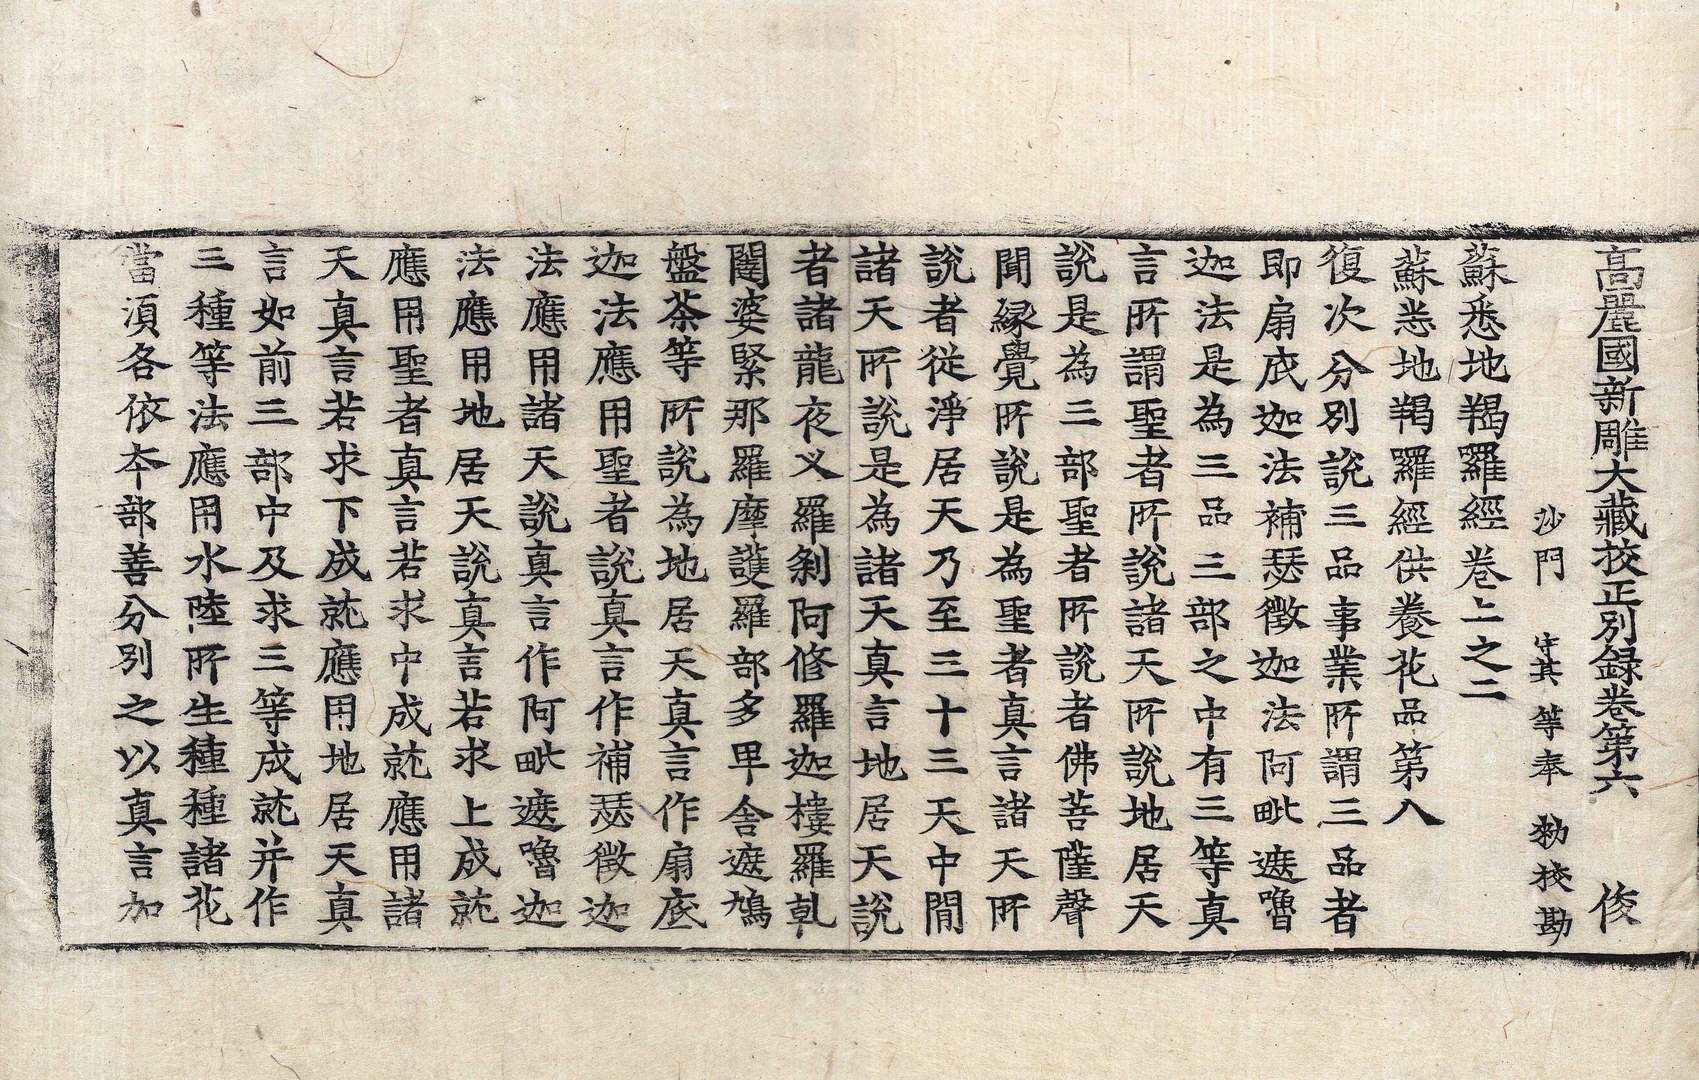 高麗國新雕大藏校正別録卷第六 俊
沙門 守其 等奉 勑校勘
蘇悉地羯羅經卷上之二
蘇悉地羯羅經供養花品第八
復次分別說三品事業所謂三品者
即扇底迦法補瑟徵迦法阿毗遮嚕
迦法是為三品三部之中有三等真
言所謂聖者所說諸天所說地居天
說是為三部聖者所說者佛菩薩聲
聞緣覺所說是為聖者真言諸天所
說者從淨居天乃至三十三天中間
諸天所說是為諸天真言地居天說
者諸龍夜叉羅剎阿修羅迦樓羅乹
闥婆緊那羅摩護羅部多畢舍遮鳩
盤茶等所說為地居天真言作扇底
迦法應用聖者說真言作補瑟徵迦
法應用諸天說真言作阿毗遮嚕迦
法應用地居天說真言若求上成就
應用聖者真言若求中成就應用諸
天真言若求下成就應用地居天真
言如前三部中及求三等成就并作
三種等法應用水陸所生種種諸花
當湏各依夲部善分別之以真言加